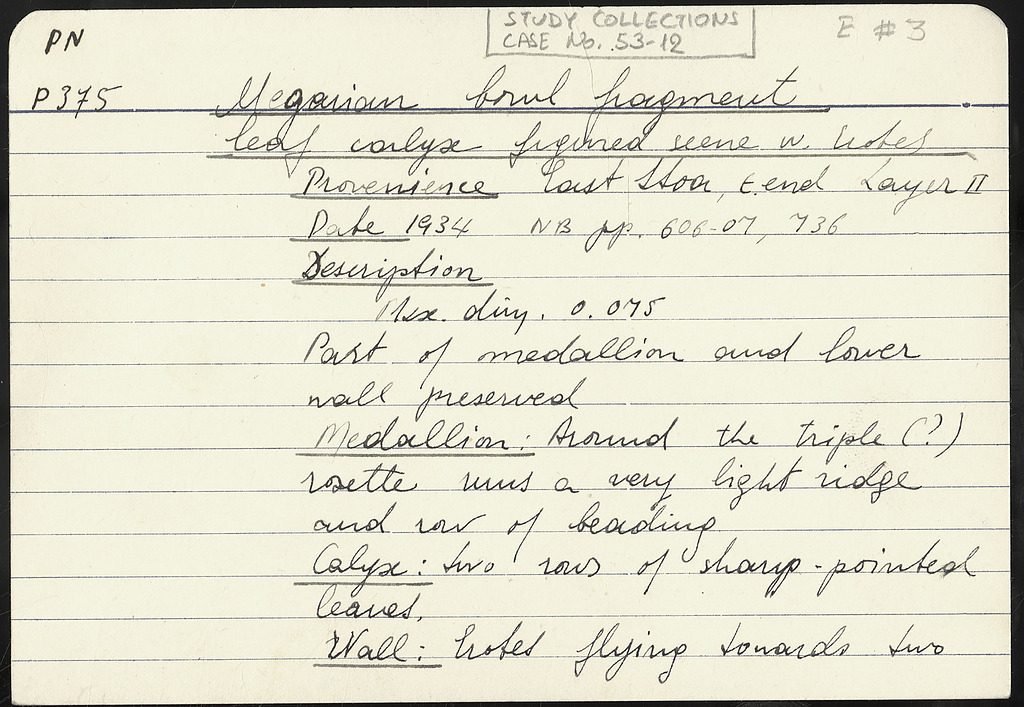 PN
STUDY COLLECTIONS
CASE No. 53-12
E #3
P375 Megarian bowl fragment
leaf calyx figured scene w. Erotes
Provenience East Stoa, E. end Layer II
Date 1934 NB pp. 606-07, 736
Description
Max. dim. 0.075
Part of medallion and lower
wall preserved
Medallion: Around the triple (?)
rosette runs a very light ridge
and row of beading
Calyx: two rows of sharp-pointed
leaves.
Wall: Erotes flying towards two